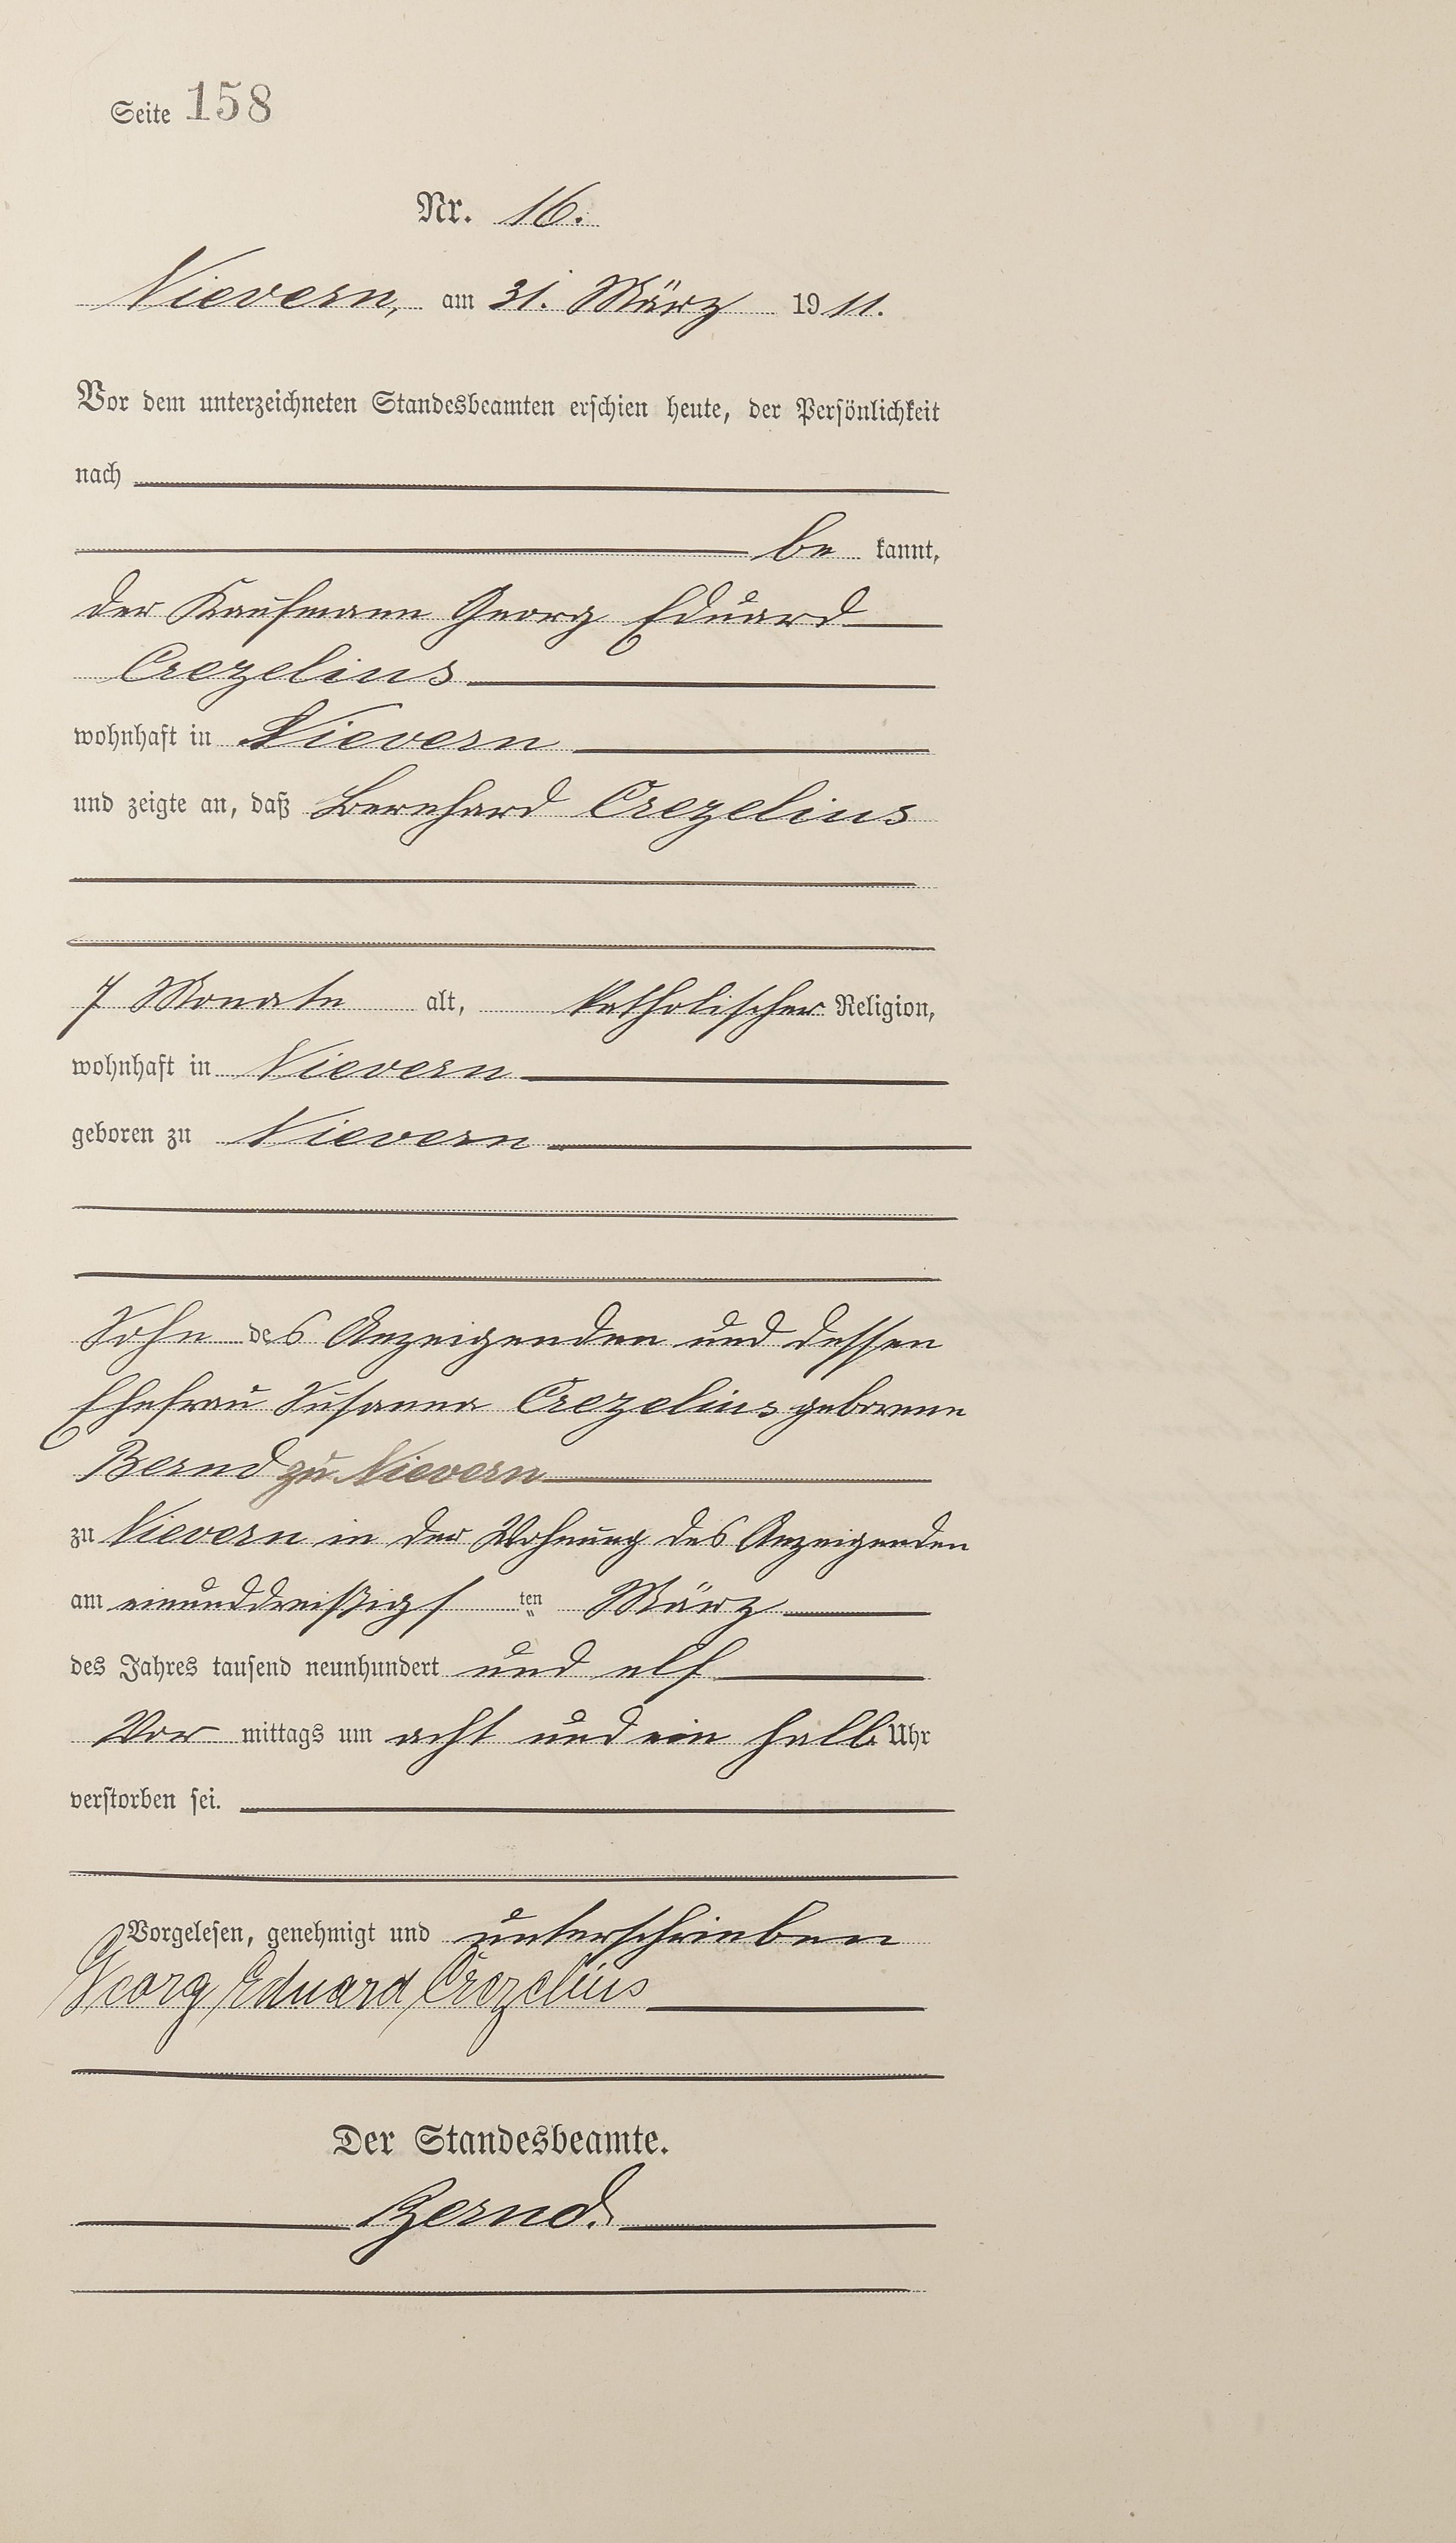 Seite 158
Nr. 16.
Nievern, am 31. März 1911.
Vor dem unterzeichneten Standesbeamten erschien heute, der Persönlichkeit
nach
be kannt,
der Kaufmann Georg Eduard
Crezelius
wohnhaft in Nievern
und zeigte an, daß Bernhard Crezelius
7 Monate alt, katholischer Religion,
wohnhaft in Nievern
geboren zu Nievern
Sohn des Anzeigenden und dessen
Ehefrau Susanna Crezelius geborene
Bernd zu Nievern
zu Nievern in der Wohnung des Anzeigenden
am einunddreißigsten März
des Jahres tausend neunhundert und elf
Vor mittags um acht und ein halb Uhr
verstorben sei.
Vorgelesen, genehmigt und unterschrieben
Georg Eduard Crezelius
Der Standesbeamte.
Bernd.